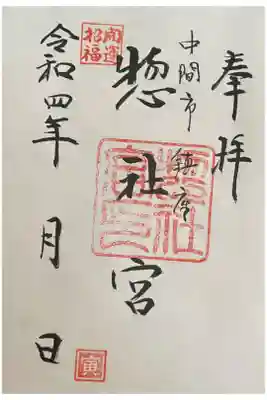 奉拝
中間市
鎮座
惣社宮
開運
招福
令和四年 月 日
寅